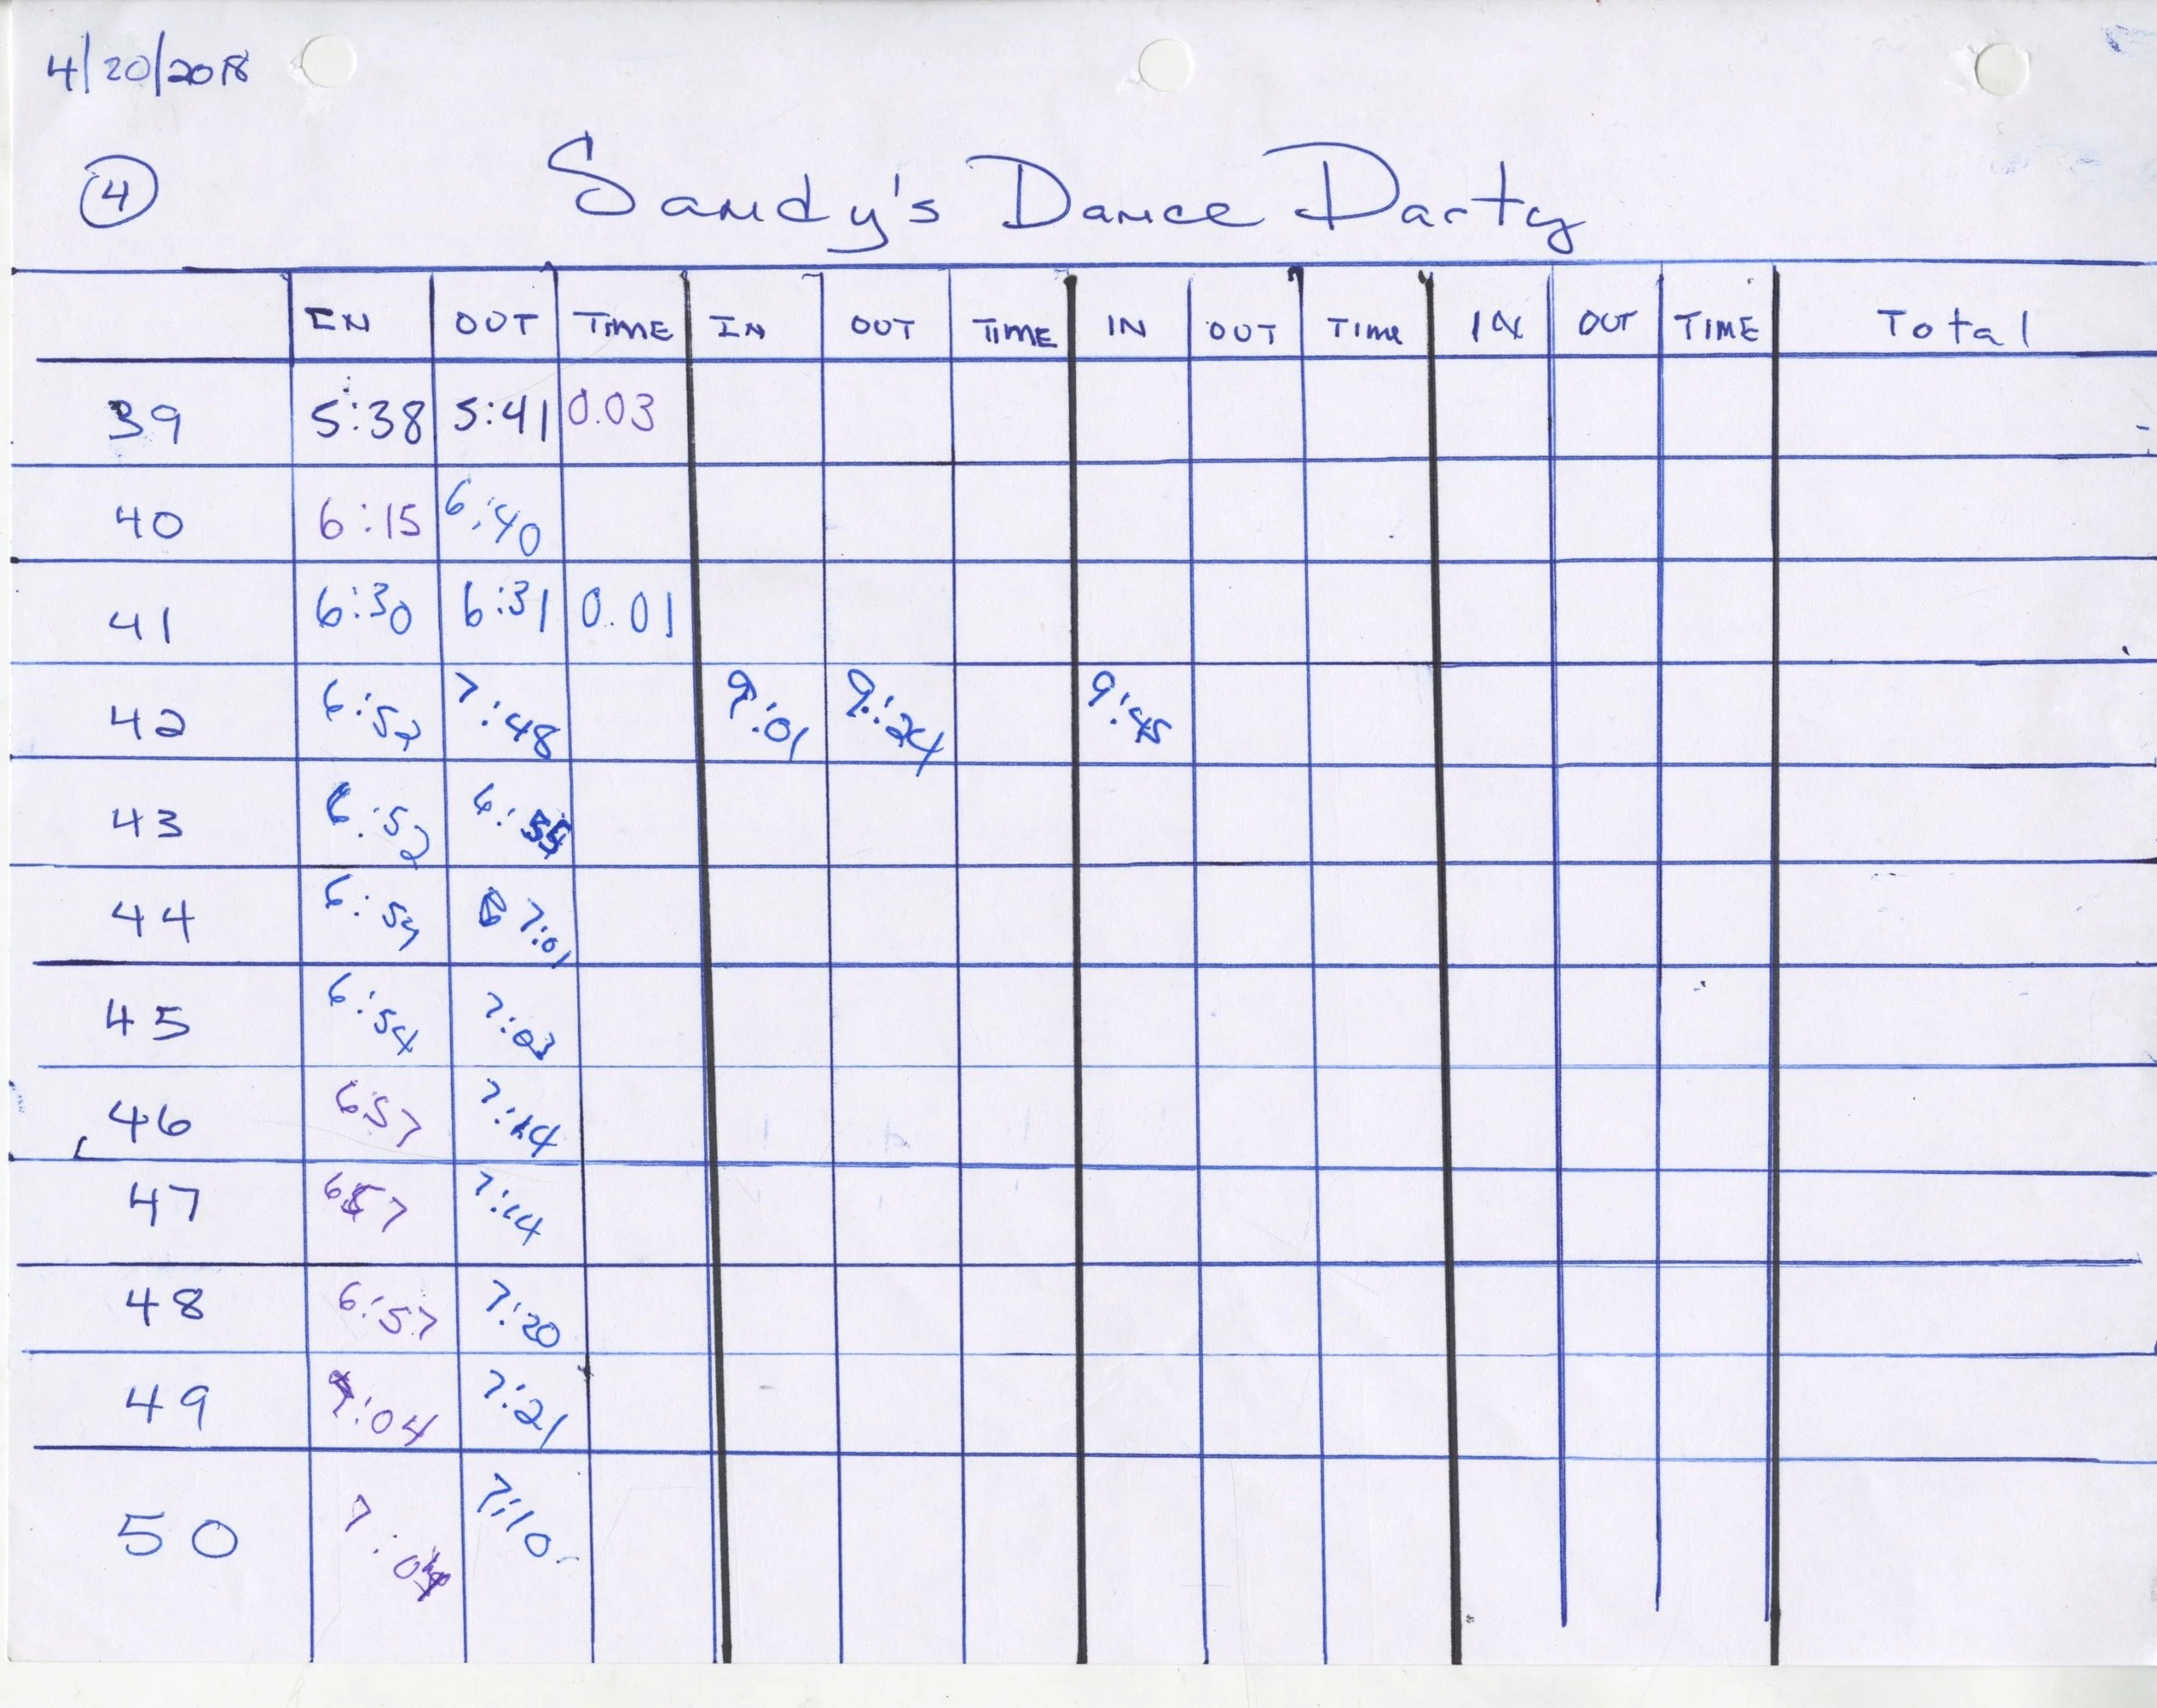 4/20/2018
4
Sandy's Dance Party
IN OUT TIME IN OUT TIME IN OUT TIME IN OUT TIME Total
39 5:38 5:41 0.03
40 6:15 6:40
41 6:30 6:31 0.01
42 6:52 7:48 9:01 9:24 9:45
43 6:52 6:55
44 7:01
45 6:54 7:03
46 657 7:14
47 657 7:14
48 6:57 7:20
49 7:04 7:21
50 7:10